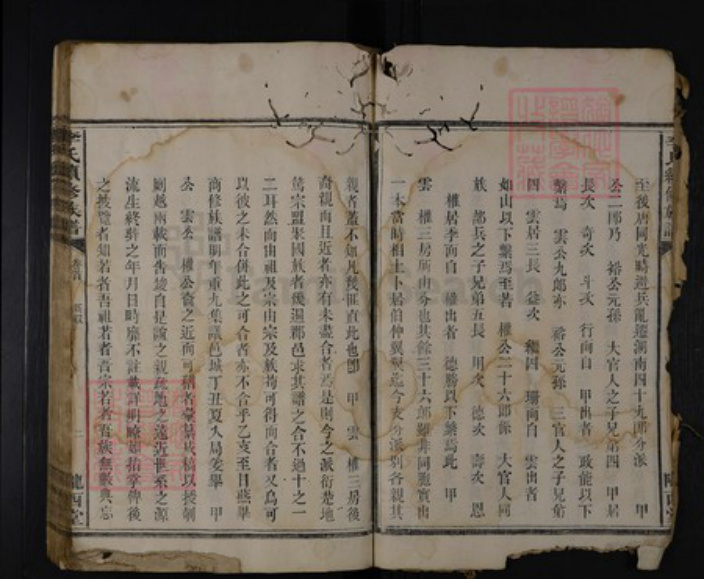 至後唐同光時避兵亂遷湖南四十九郎分派 甲
公二郎乃 裕公元孫 大官人之子兄弟四 甲居
長次 奇次 斗次 行而自 甲出者 政能以下
繫焉 雲公九郎亦 裕公元孫 三官人之子兄弟
四 雲居三長 益次 繼四 珊而自 雲出者
如山以下繫焉至若 權公二十六郎係 大官人同
族 部兵之子兄弟五長 用次 德次 壽次 恩
權居季而自 權出者 德勝以下繫焉此 甲
雲 權三房所由分也其餘三十六郎雖非同胞實出
一本當時相土卜居伯仲翼翼迄今支分派別各親其
親者蓋不知凡幾匪直此也卽 甲 雲 權三房後
裔親而且近者亦有未盡合者焉是則今之派衍楚地
篤宗盟聚國族者幾遍郡邑求其譜之合不過十之一
二耳然而由祖及宗由宗及族苟可得而合者又烏可
以彼之未合併此之可合者亦不合乎乙亥至日燕舉
商修族譜明年重九集議邑城丁丑夏入局爰舉 甲
公 雲公 權公裔之近而可稽者彙纂成稿以授剞
劂越兩載而告竣自是譜之親疏地之遠近世系之源
流生終葬之年月日時靡不註載詳明瞭如指掌俾後
之披覽者知若者吾祖若者吾宗若者吾族無數典忘
李氏續修族譜
卷首
二
隴西堂